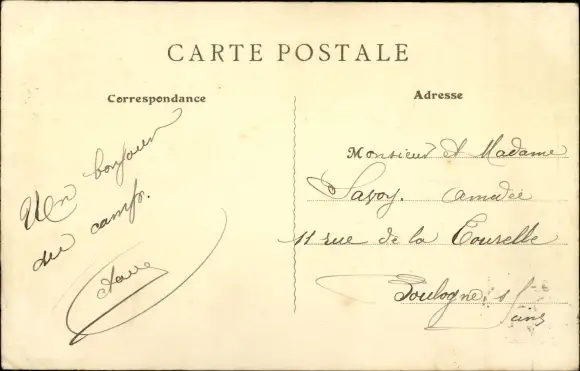 CARTE POSTALE
Correspondance
Adresse
Un bonjour
du camp.
Monsieur et Madame
Savoy. Amedée
11 rue de la Tourelle
Boulogne s/
Seine